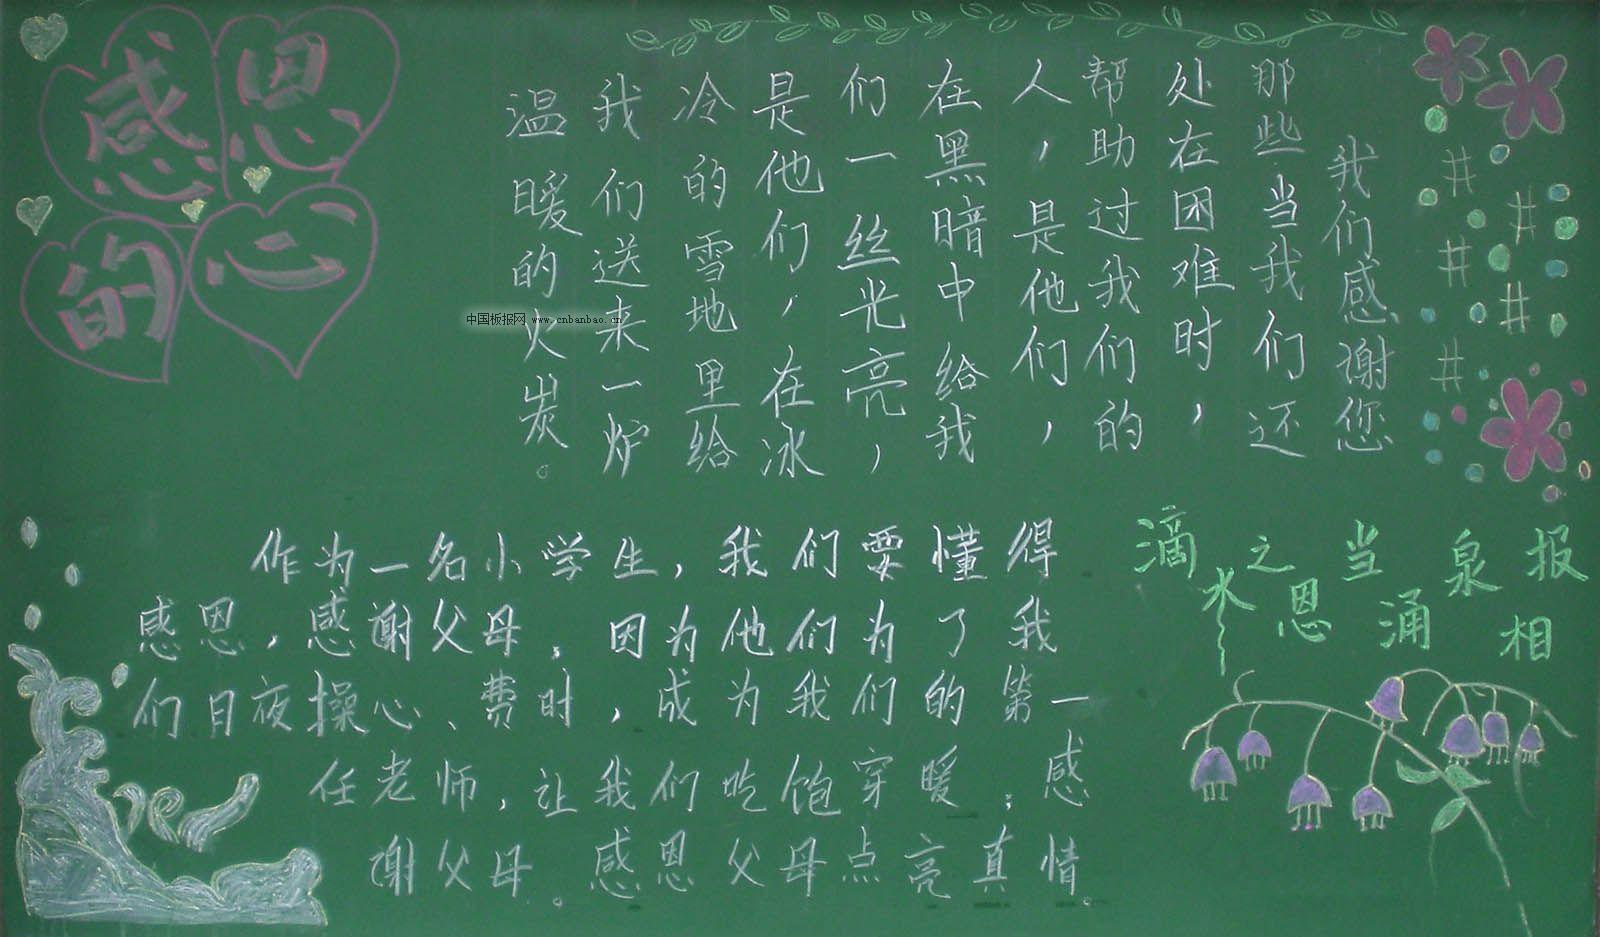 感恩
的心
我们感谢您
那些当我们还
处在困难时，
帮助过我们的
人，是他们，
在黑暗中给我
们一丝光亮，
是他们，在冰
冷的雪地里给
我们送来一炉
温暖的火炭。
中国板报网 www.cnbanbao.cn
作为一名小学生，我们要懂得
感恩，感谢父母，因为他们为了我
们日夜操心、费时，成为我们的第一
任老师，让我们吃饱穿暖；感
谢父母。感恩父母点亮真情。
滴水之恩当涌泉相报